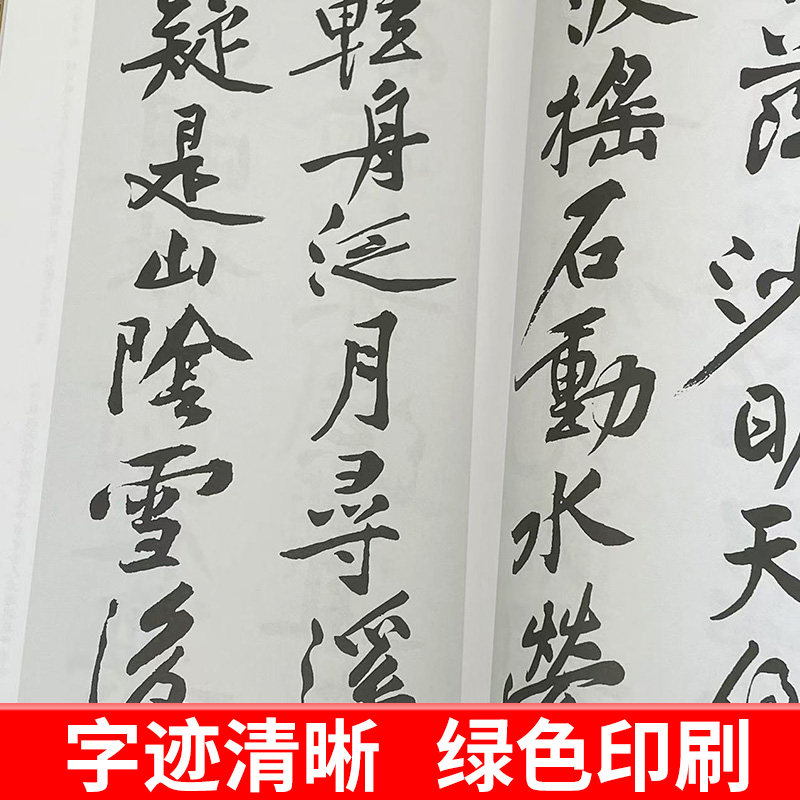 落沙明天
波搖石動水縈
輕舟泛月尋溪
疑是山陰雪後
字迹清晰 绿色印刷